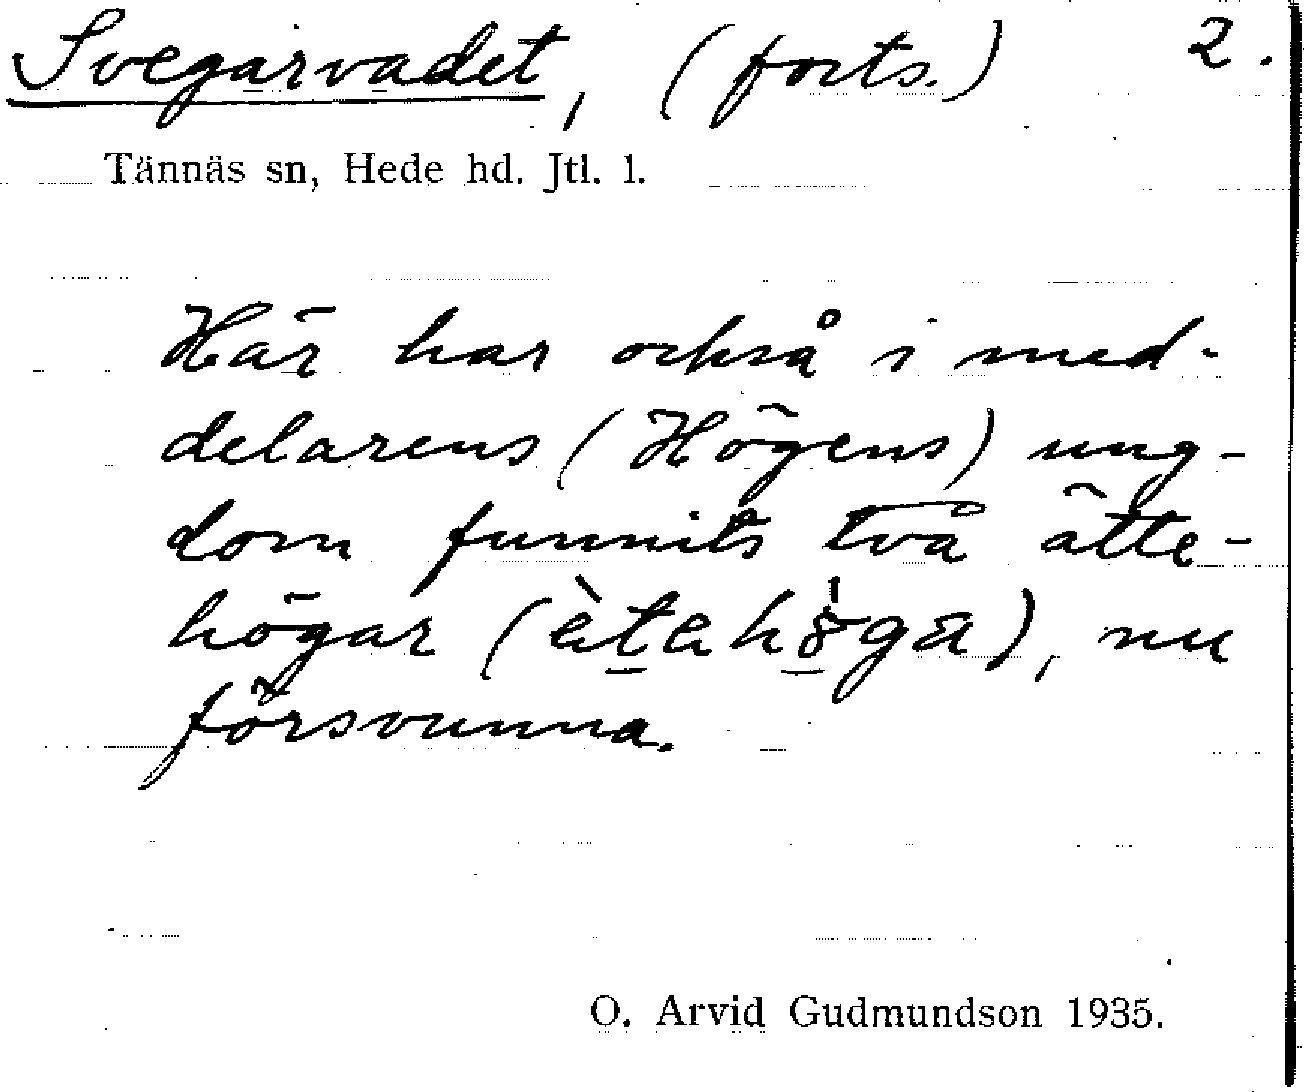 Svegarvadet, (forts.) 2.
Tännäs sn, Hede hd. Jtl. l.
Här har också i med-
delarens (Högens) ung-
dom funnits två ätte-
högar (ètahö̀ga), nu
försvunna.
O. Arvid Gudmundson 1935.